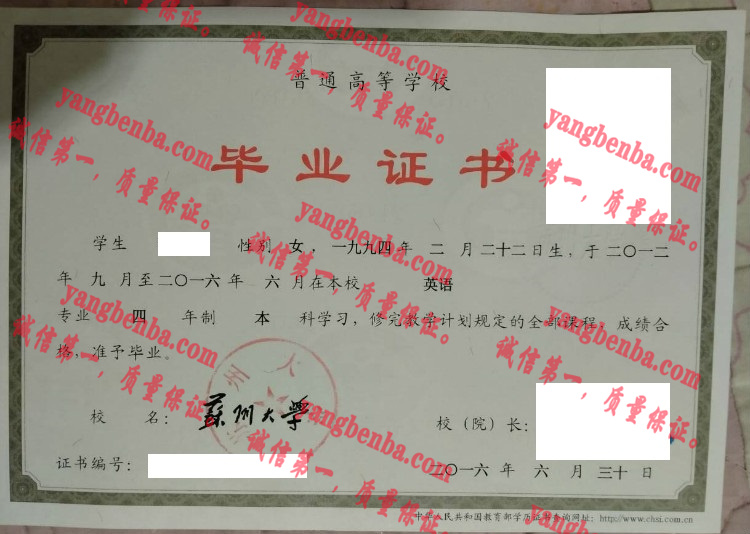 普通高等学校
毕业证书
学生 性别 女，一九九四年 二 月二十二日生，于二〇一二
年 九 月至二〇一六年 六 月在本校 英语
专业 四 年制 本 科学习，修完教学计划规定的全部课程，成绩合
格，准予毕业。
校 名：蘇州大学 校（院）长：
证书编号： 二〇一六 年 六 月 三十 日
中华人民共和国教育部学历证书查询网址：http://www.chsi.com.cn
yangbenba.com
诚信第一，质量保证。
yangbenba.com
诚信第一，质量保证。
yangbenba.com
诚信第一，质量保证。
yangbenba.com
诚信第一，质量保证。
yangbenba.com
诚信第一，质量保证。
yangbenba.com
诚信第一，质量保证。
yangbenba.com
诚信第一，质量保证。
yangbenba.com
诚信第一，质量保证。
yangbenba.com
诚信第一，质量保证。